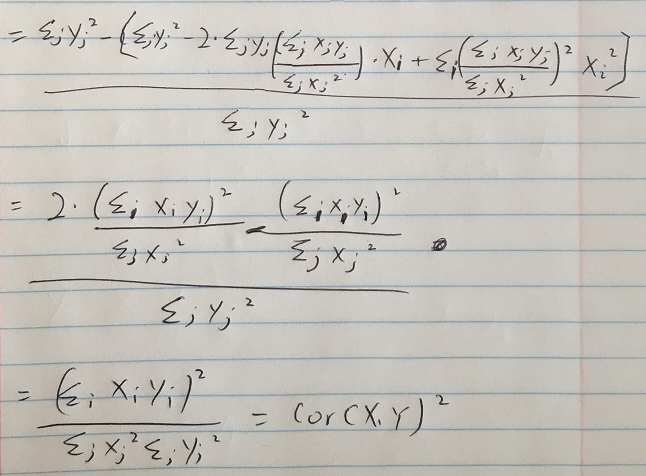 = Σⱼyⱼ² - (Σⱼyⱼ² - 2·Σⱼyⱼ(Σⱼ xⱼyⱼ / Σⱼxⱼ²)·xᵢ + Σᵢ(Σⱼ xⱼyⱼ / Σⱼxⱼ²)² xᵢ²)
Σⱼ yⱼ²
= 2·(Σᵢ xᵢyᵢ)² / Σⱼxⱼ² - (Σᵢxᵢyᵢ)² / Σⱼxⱼ²
Σⱼ yⱼ²
= (Σᵢ xᵢyᵢ)² / Σⱼxⱼ²Σⱼyⱼ² = Cor(X,Y)²